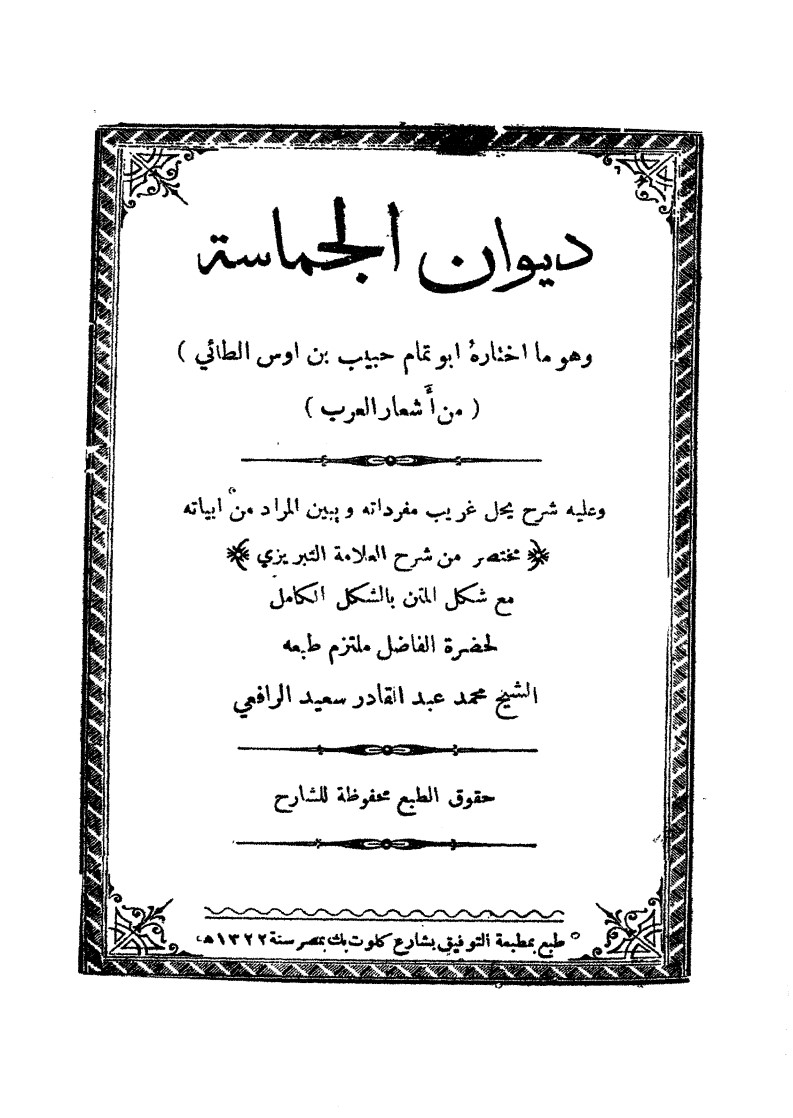 ديوان الحماسة
وهو ما اختارهُ ابو تمام حبيب بن اوس الطائي )
( من أَشعار العرب )
وعليه شرح يحل غريب مفرداته ويبين المراد من ابياته
مختصر من شرح العلامة التبريزي
مع شكل المتن بالشكل الكامل
لحضرة الفاضل ملتزم طبعه
الشيخ محمد عبد القادر سعيد الرافعي
حقوق الطبع محفوظة للشارح
طبع بمطبعة التوفيق بشارع كلوت بك بمصر سنة ١٣٢٢ هـ